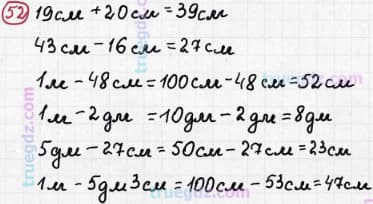 52 19см + 20см = 39см
43см - 16см = 27см
1м - 48см = 100см - 48см = 52см
1м - 2дм = 10дм - 2дм = 8дм
5дм - 27см = 50см - 27см = 23см
1м - 5дм3см = 100см - 53см = 47см
truegdz.com
truegdz.com